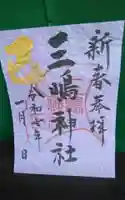 新春奉拝
三嶋神社
令和七年
一月 日